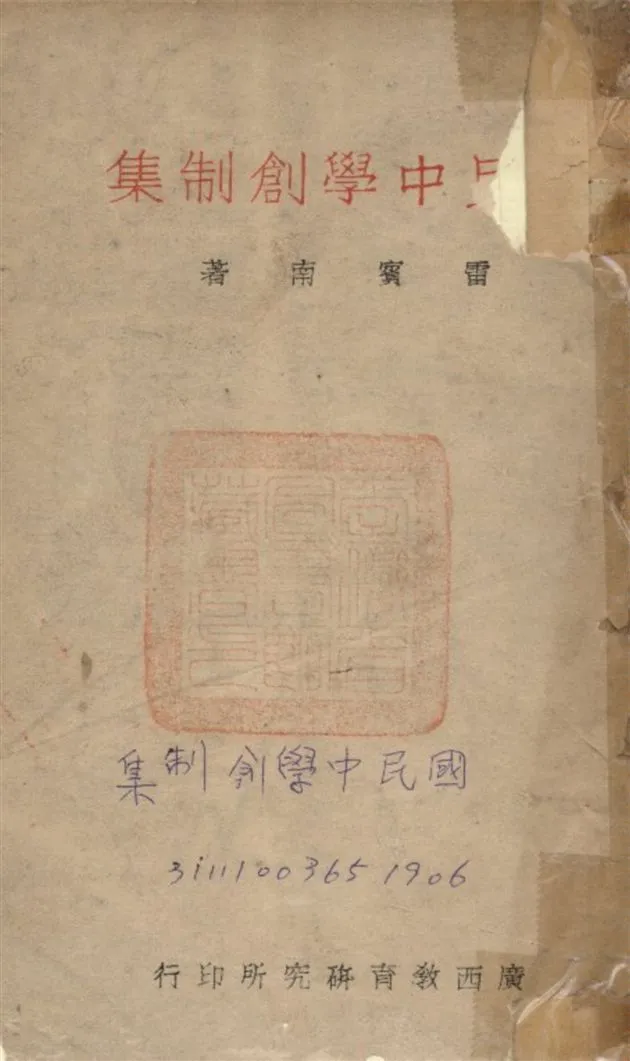 民中學創制集
雷賓南著
國民中學創制集
3111100365 1906
廣西敎育硏究所印行